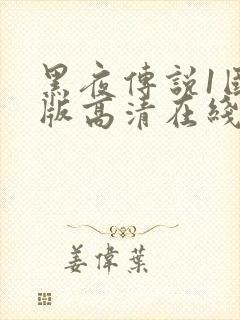 黑夜傳説1
版高清在綫
姜偉葉